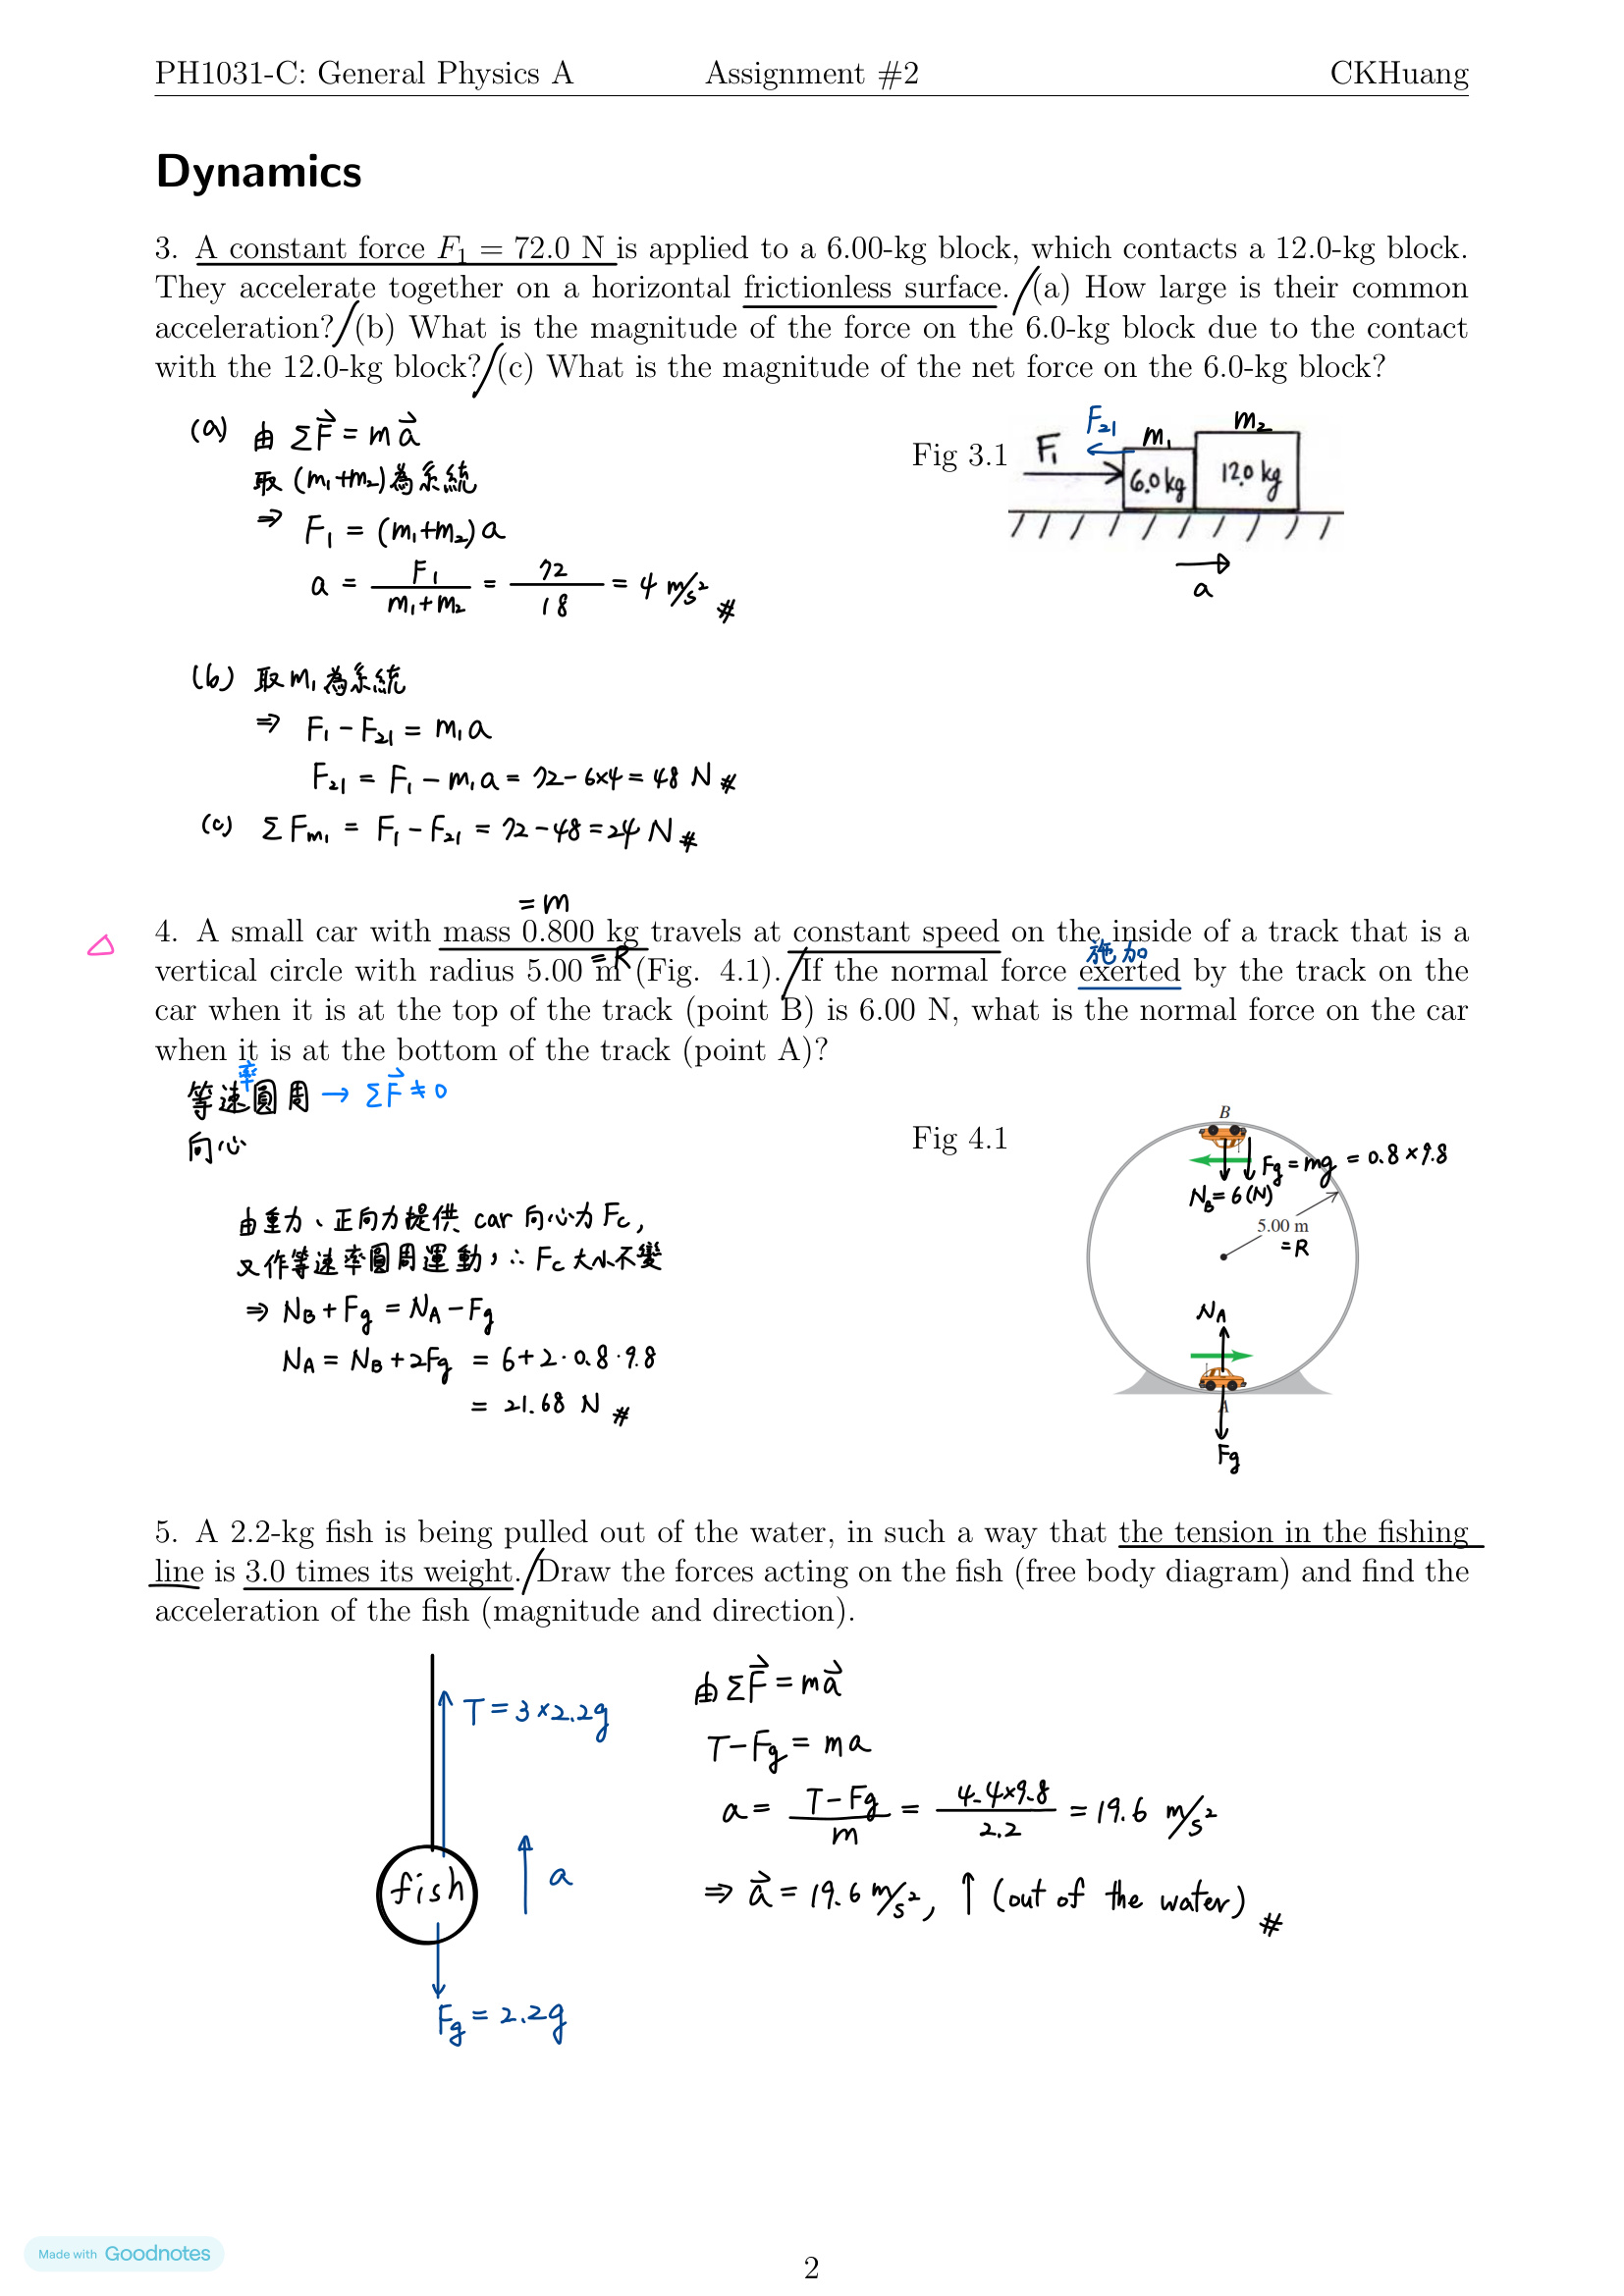 PH1031-C: General Physics A Assignment #2 CKHuang
Dynamics
3. A constant force F₁ = 72.0 N is applied to a 6.00-kg block, which contacts a 12.0-kg block.
They accelerate together on a horizontal frictionless surface. (a) How large is their common
acceleration? (b) What is the magnitude of the force on the 6.0-kg block due to the contact
with the 12.0-kg block? (c) What is the magnitude of the net force on the 6.0-kg block?
(a) 由 ΣF⃗ = m a⃗
取 (m₁+m₂) 為系統
⇒ F₁ = (m₁+m₂) a
a = F₁/(m₁+m₂) = 72/18 = 4 m/s² #
Fig 3.1
F₁
F₂₁
m₁
m₂
6.0 kg
12.0 kg
a
(b) 取 m₁ 為系統
⇒ F₁ - F₂₁ = m₁ a
F₂₁ = F₁ - m₁ a = 72 - 6×4 = 48 N #
(c) Σ Fm₁ = F₁ - F₂₁ = 72 - 48 = 24 N #
= m
4. A small car with mass 0.800 kg travels at constant speed on the inside of a track that is a
= R
施加
vertical circle with radius 5.00 m (Fig. 4.1). If the normal force exerted by the track on the
car when it is at the top of the track (point B) is 6.00 N, what is the normal force on the car
when it is at the bottom of the track (point A)?
率
等速圓周 → ΣF⃗ ≠ 0
向心
由重力、正向力提供 car 向心力 Fc,
又作等速率圓周運動，∴ Fc 大小不變
⇒ N_B + Fg = N_A - Fg
N_A = N_B + 2Fg = 6 + 2·0.8·9.8
= 21.68 N #
Fig 4.1
B
Fg = mg = 0.8 × 9.8
N_B = 6 (N)
5.00 m
= R
N_A
A
Fg
5. A 2.2-kg fish is being pulled out of the water, in such a way that the tension in the fishing
line is 3.0 times its weight. Draw the forces acting on the fish (free body diagram) and find the
acceleration of the fish (magnitude and direction).
T = 3 × 2.2g
fish
a
Fg = 2.2g
由 ΣF⃗ = m a⃗
T - Fg = m a
a = (T - Fg)/m = 4.4×9.8/2.2 = 19.6 m/s²
⇒ a⃗ = 19.6 m/s², ↑ (out of the water) #
Made with Goodnotes
2